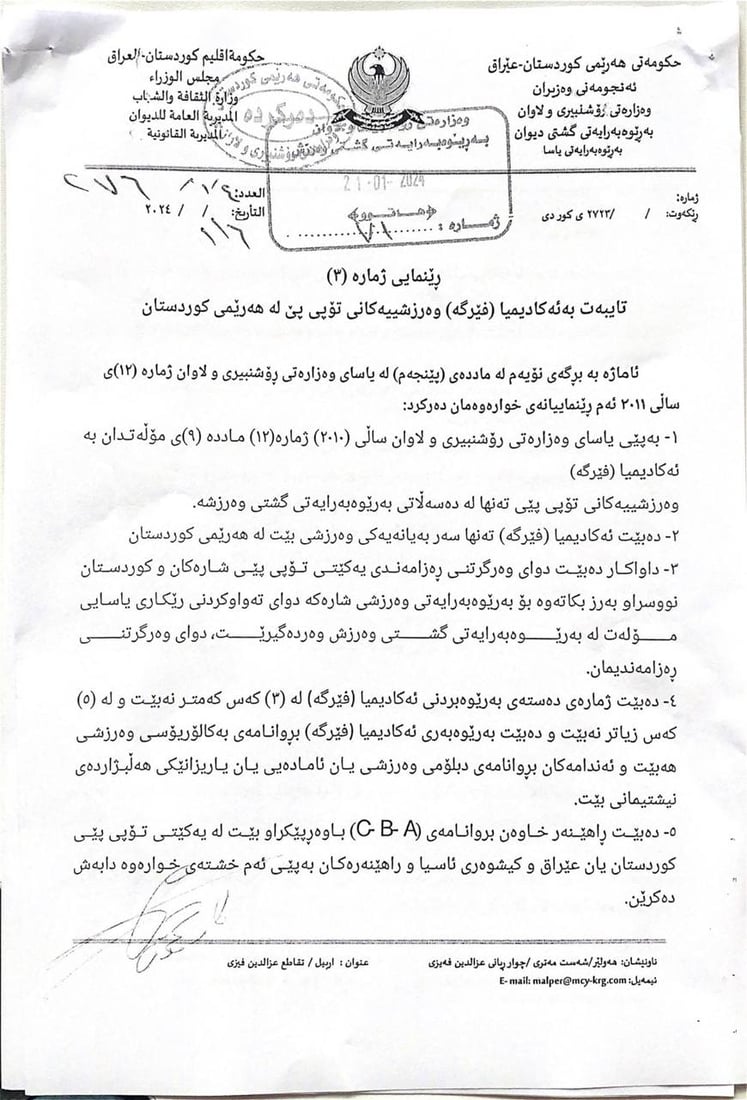 حکومەتی هەرێمی کوردستان-عێراق
ئەنجومەنی وەزیران
وەزارەتی ڕۆشنبیری و لاوان
بەڕێوەبەرایەتی گشتی دیوان
بەڕێوەبەرایەتی یاسا
حکومة اقلیم کوردستان-العراق
مجلس الوزراء
وزارة الثقافة والشباب
المدیریة العامة للدیوان
المدیریة القانونیة
دەرکردە
بەڕێوەبەرایەتی گشتی وەرزش
21-01-2024
«هاتوو»
ژمارە :
ژمارە:
ڕێکەوت: / /٢٧٢٣ ی کوردی
العدد:
التأریخ: / / ٢٠٢٤
ڕێنمایی ژمارە (٣)
تایبەت بەئەکادیمیا (فێرگە) وەرزشییەکانی تۆپی پێ لە هەرێمی کوردستان
ئاماژە بە برگەی نۆیەم لە ماددەی (پێنجەم) لە یاسای وەزارەتی ڕۆشنبیری و لاوان ژمارە (١٢)ی
ساڵی ٢٠١١ ئەم ڕێنماییانەی خوارەوەمان دەرکرد:
١- بەپێی یاسای وەزارەتی رۆشنبیری و لاوان ساڵی (٢٠١٠) ژمارە(١٢) ماددە (٩)ی مۆڵەتدان بە
ئەکادیمیا (فێرگە)
وەرزشییەکانی تۆپی پێی تەنها لە دەسەڵاتی بەرێوەبەرایەتی گشتی وەرزشە.
٢- دەبێت ئەکادیمیا (فێرگە) تەنها سەر بەیانەیەکی وەرزشی بێت لە هەرێمی کوردستان
٣- داواکار دەبێت دوای وەرگرتنی ڕەزامەندی یەکێتی تۆپی پێی شارەکان و کوردستان
نووسراو بەرز بکاتەوە بۆ بەرێوەبەرایەتی وەرزشی شارەکە دوای تەواوکردنی رێکاری یاسایی
مۆڵەت لە بەرێوەبەرایەتی گشتی وەرزش وەردەگیرێت، دوای وەرگرتنی
ڕەزامەندیمان.
٤- دەبێت ژمارەی دەستەی بەرێوەبردنی ئەکادیمیا (فێرگە) لە (٣) کەس کەمتر نەبێت و لە (٥)
کەس زیاتر نەبێت و دەبێت بەرێوەبەری ئەکادیمیا (فێرگە) بڕوانامەی بەکالۆریۆسی وەرزشی
هەبێت و ئەندامەکان بڕوانامەی دبلۆمی وەرزشی یان ئامادەیی یان یاریزانێکی هەڵبژاردەی
نیشتیمانی بێت.
٥- دەبێت ڕاهێنەر خاوەن بروانامەی (C- B- A) باوەڕپێکراو بێت لە یەکێتی تۆپی پێی
کوردستان یان عێراق و کیشوەری ئاسیا و راهێنەرەکان بەپێی ئەم خشتەی خوارەوە دابەش
دەکرێن.
ناونیشان: هەولێر/شەست مەتری /چوار ڕیانی عزالدین فەیزی
عنوان : اربیل / تقاطع عزالدین فیزی
ئیمەیل: E- mail: malper@mcy-krg.com